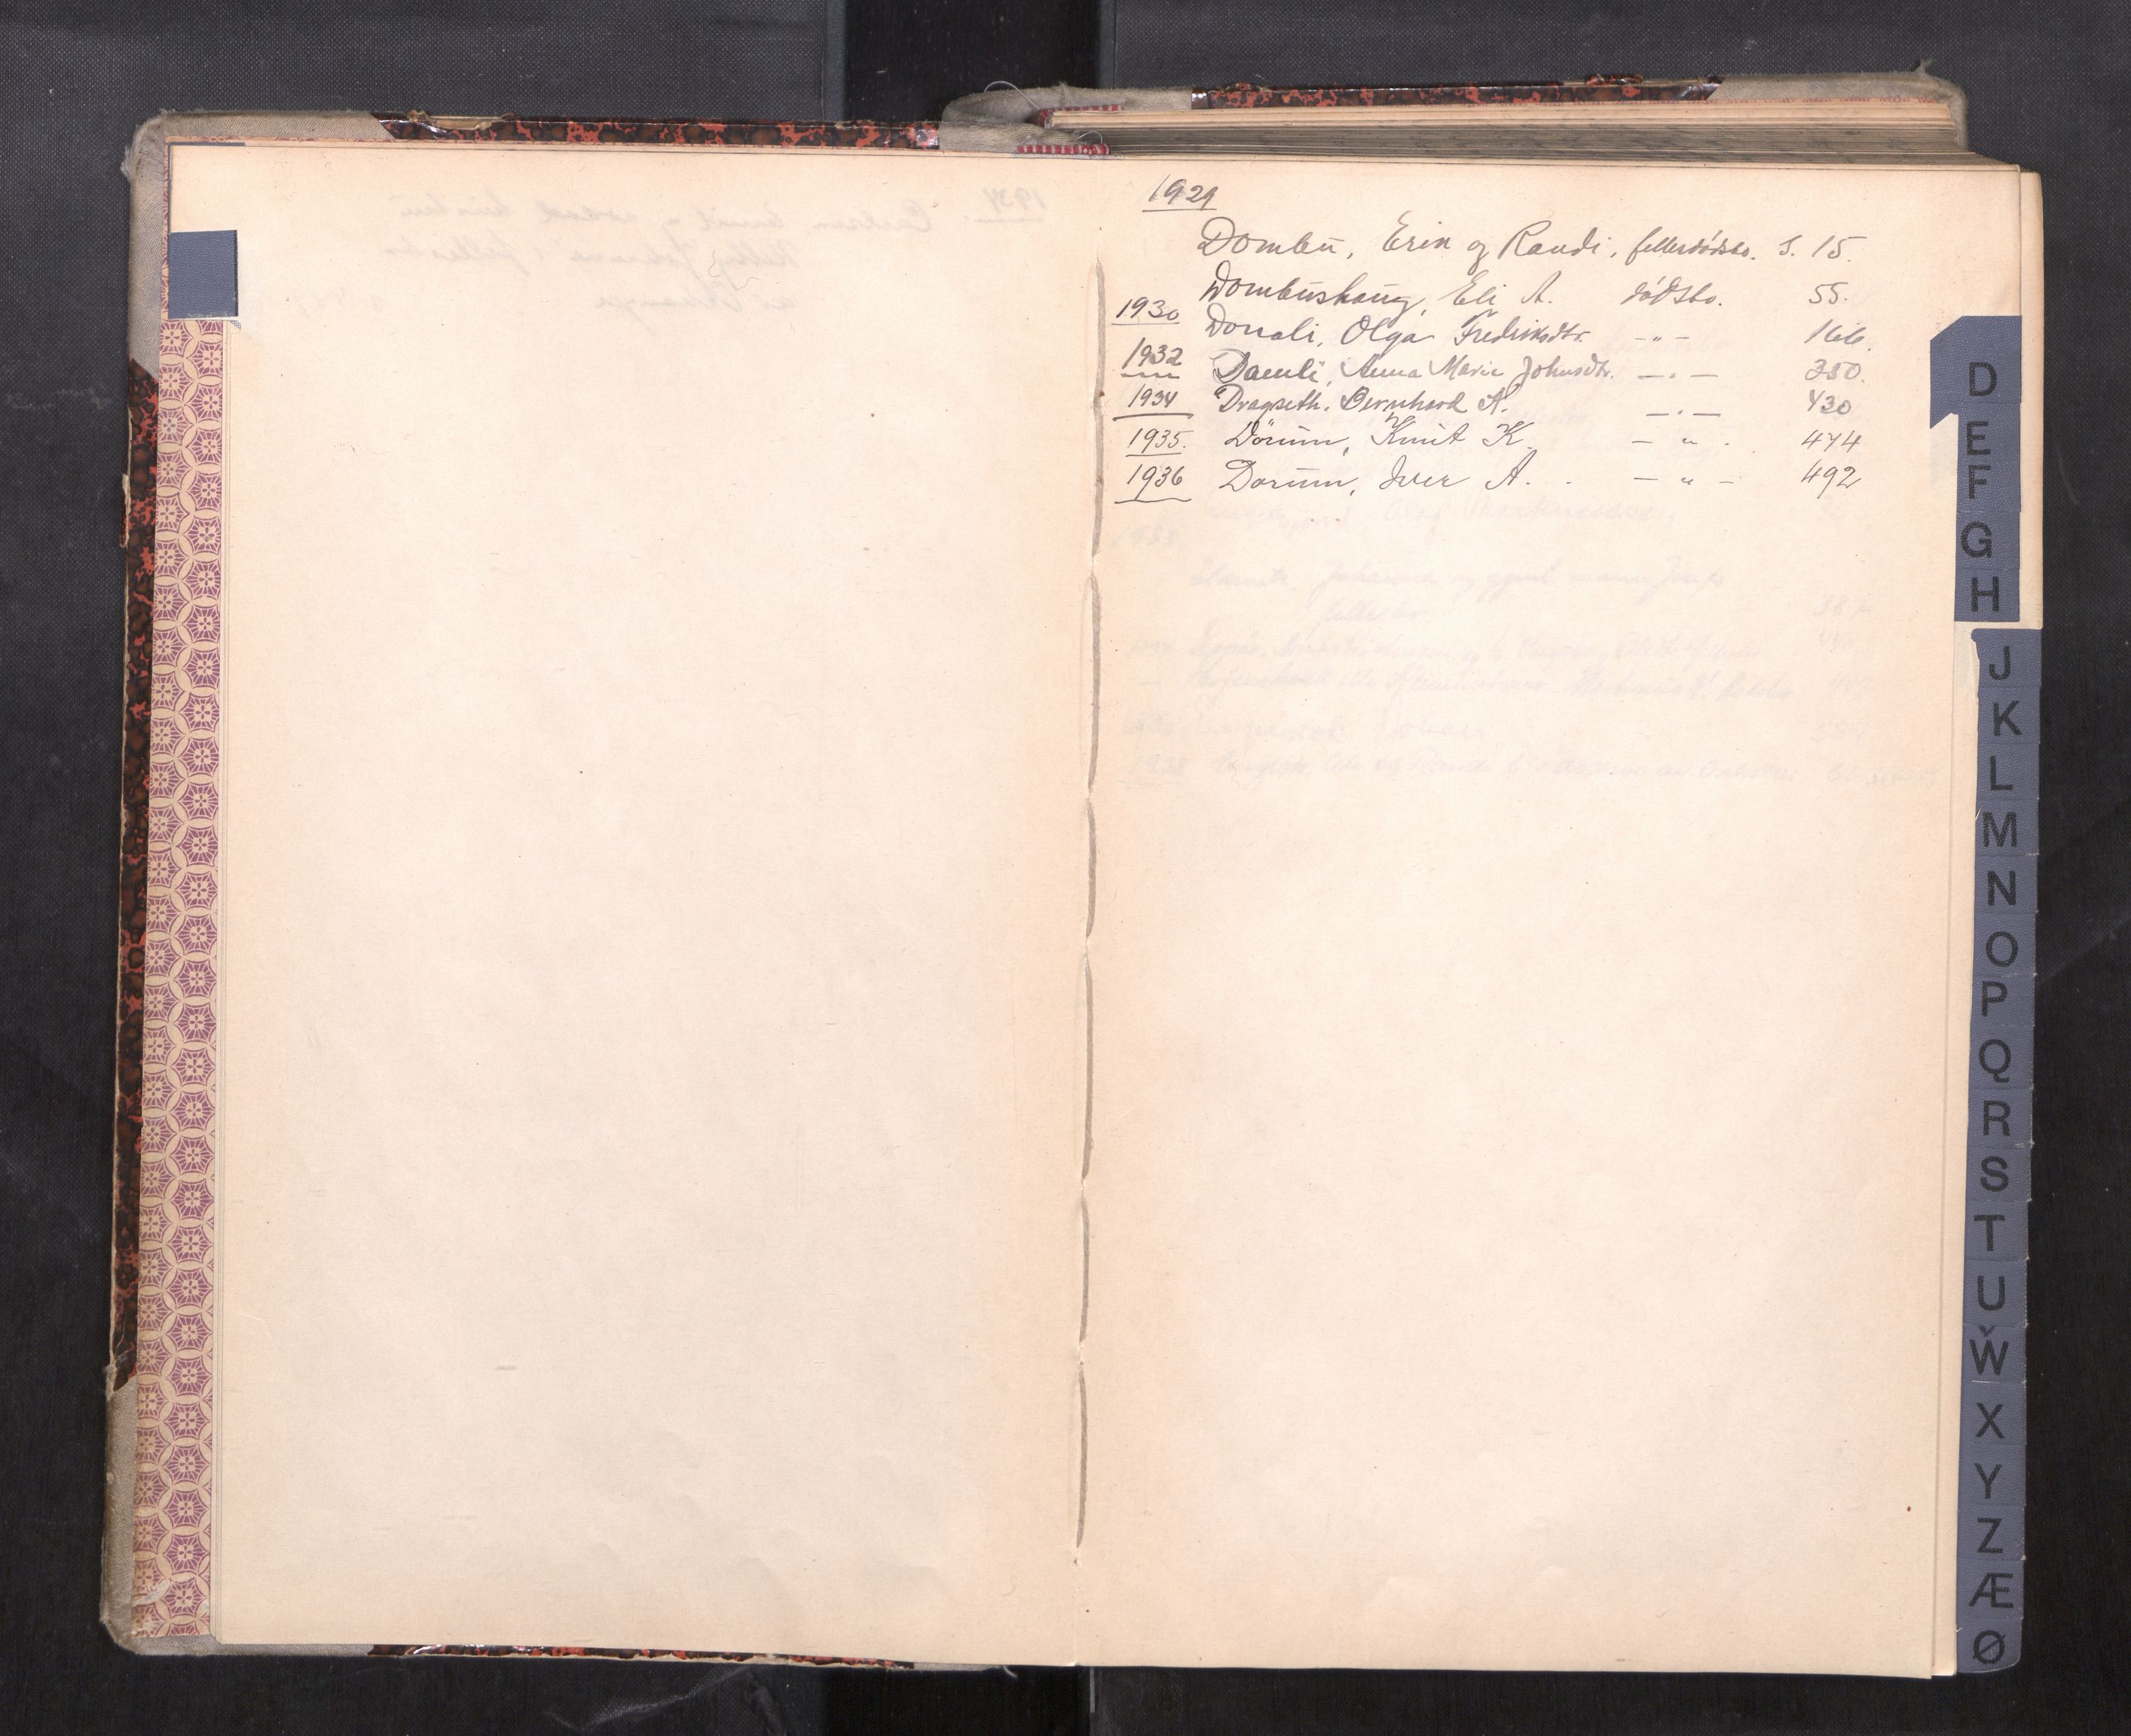 1929
Dombu, Erik og Randi, fellesdødsbo. S. 15.
Dombushaug, Eli A. dødsbo. 55.
1930 Donali, Olga Fredriksdtr. -"- 166.
1932 Damli, Anna Marie Johnsdtr. -"- 350.
1934 Dragseth, Bernhard K. -"- 430
1935. Dørum, Knut K. -"- 474
1936 Dørum, Iver A. -"- 492
D
E
F
G
H
J
K
L
M
N
O
P
Q
R
S
T
U
W
X
Y
Z
Æ
Ø